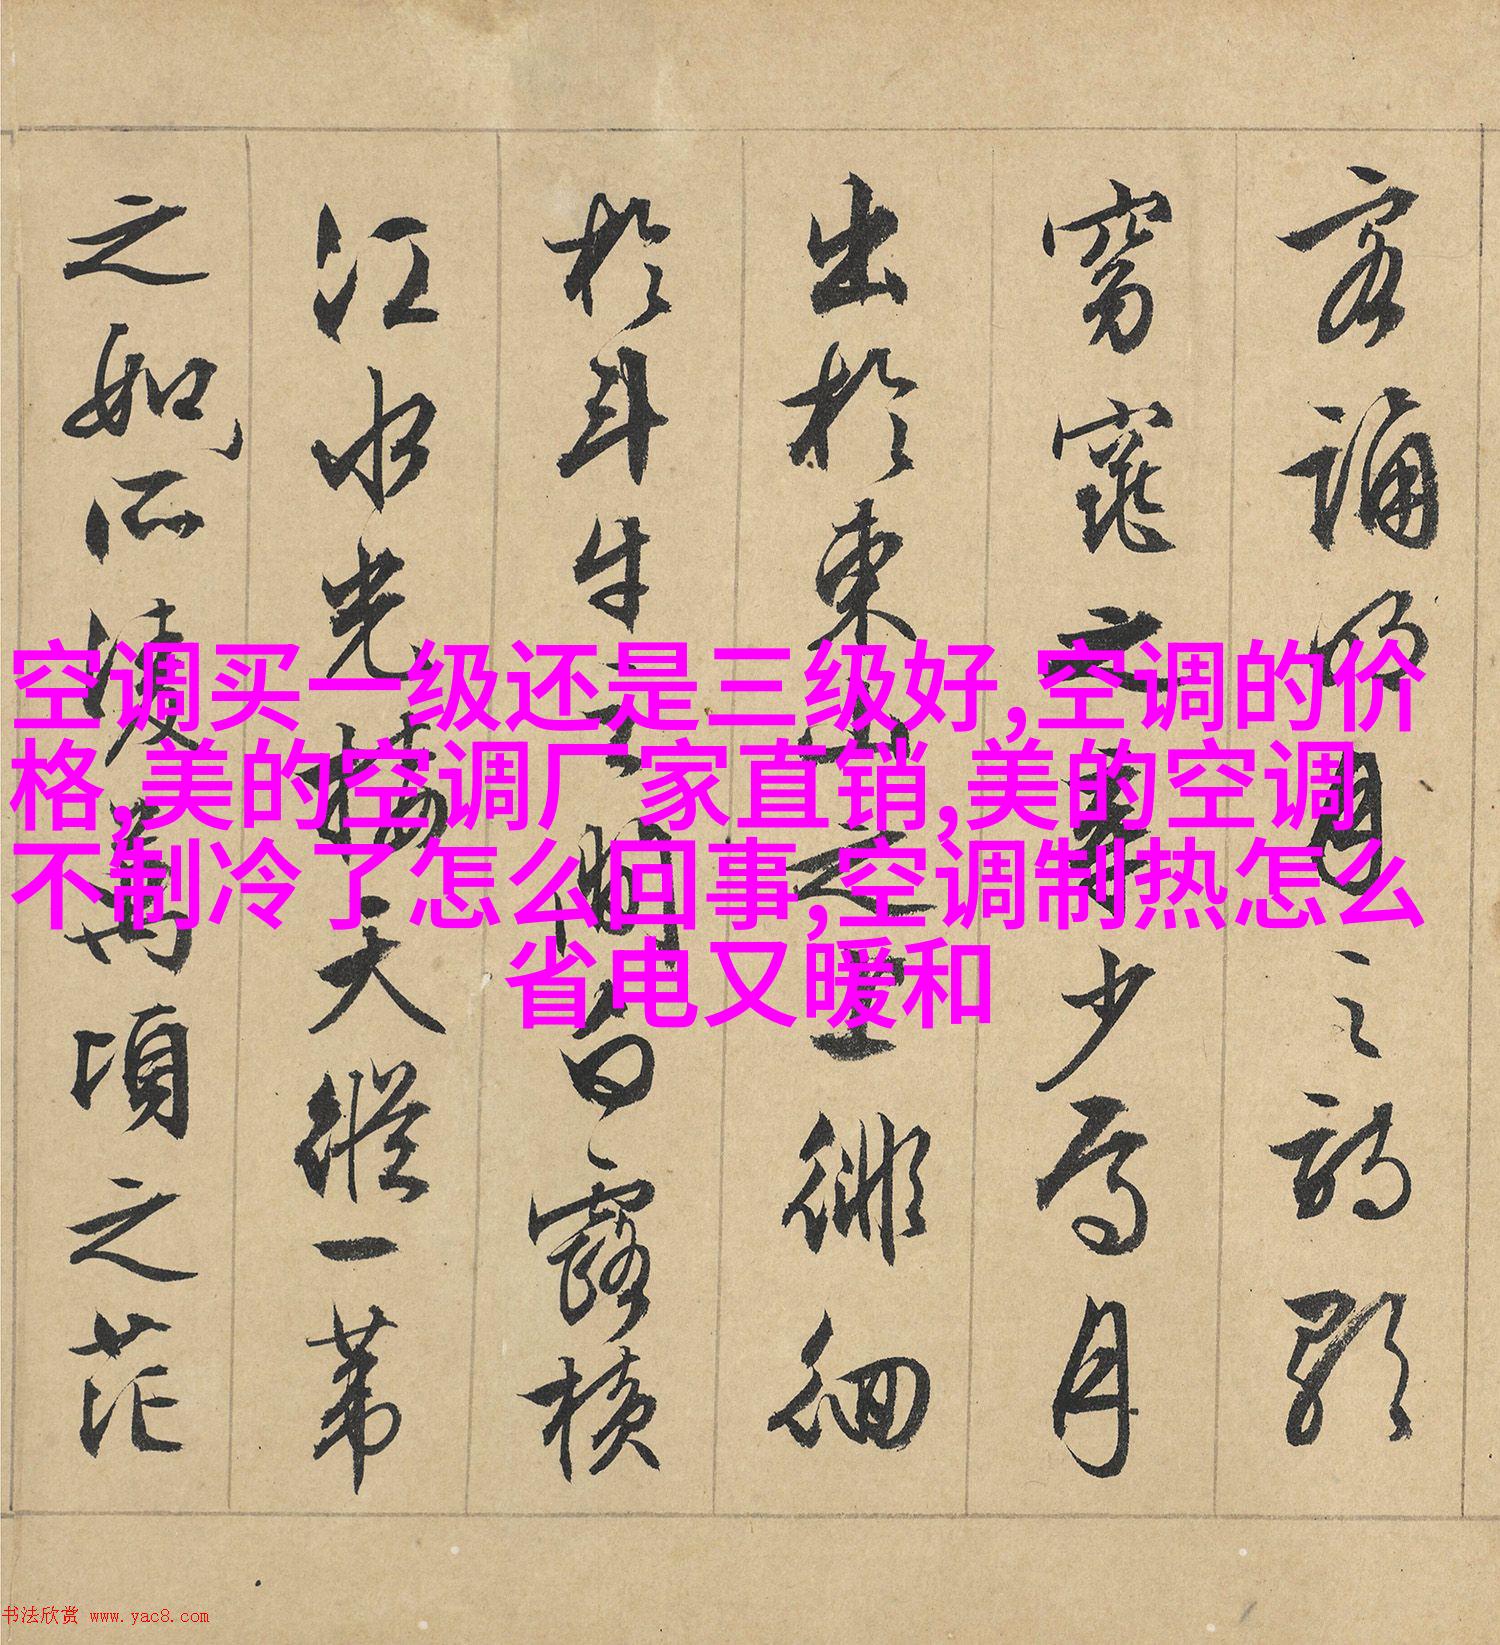 客誦明月之詩歌
窈窕之章少焉月
出於東山之上徘徊
於斗牛之間白露橫
江水光接天縱一葦
之如所凌萬頃之茫
空调买一级还是三级好,空调的价
格,美的空调厂家直销,美的空调
不制冷了怎么回事,空调制热怎么
省电又暖和
书法欣赏 www.yac8.com